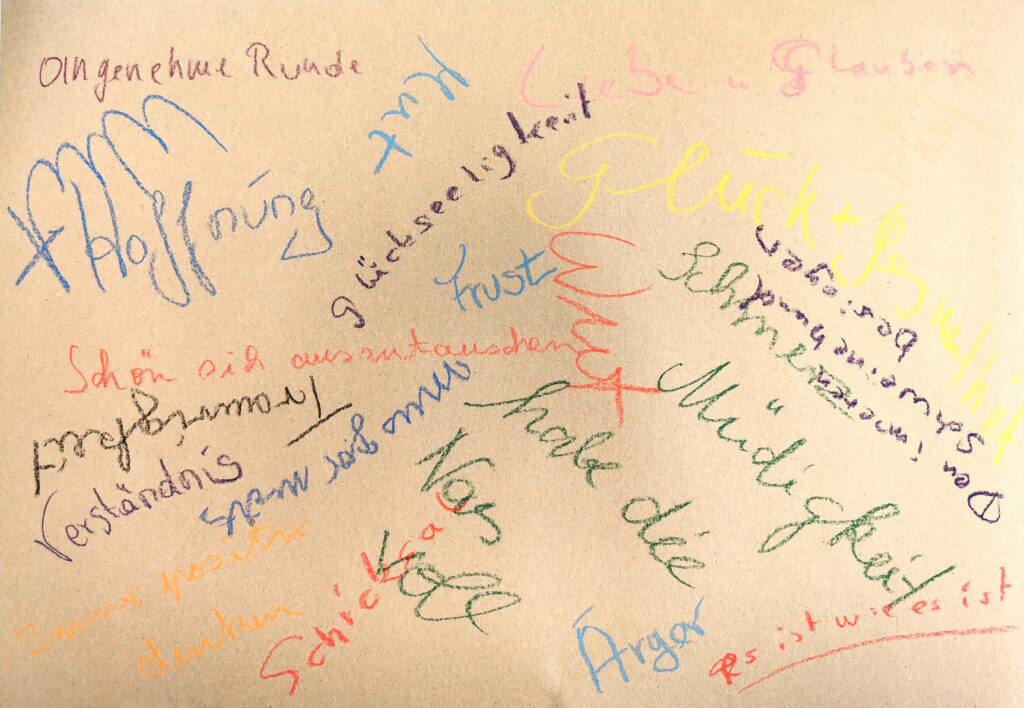 Angenehme Runde
Mut
Liebe u Glauben
Hoffnung
glückseeligkeit
Glück + Gesundheit
Frust
Wut
Schmerz
Den inneren
Schweinehund
besiegen
Schön sich auszutauschen
Müdigkeit
habe die
Nas
voll
Verständnis
Immer positiv
denken
Schicksal
Ärger
es ist wie es ist